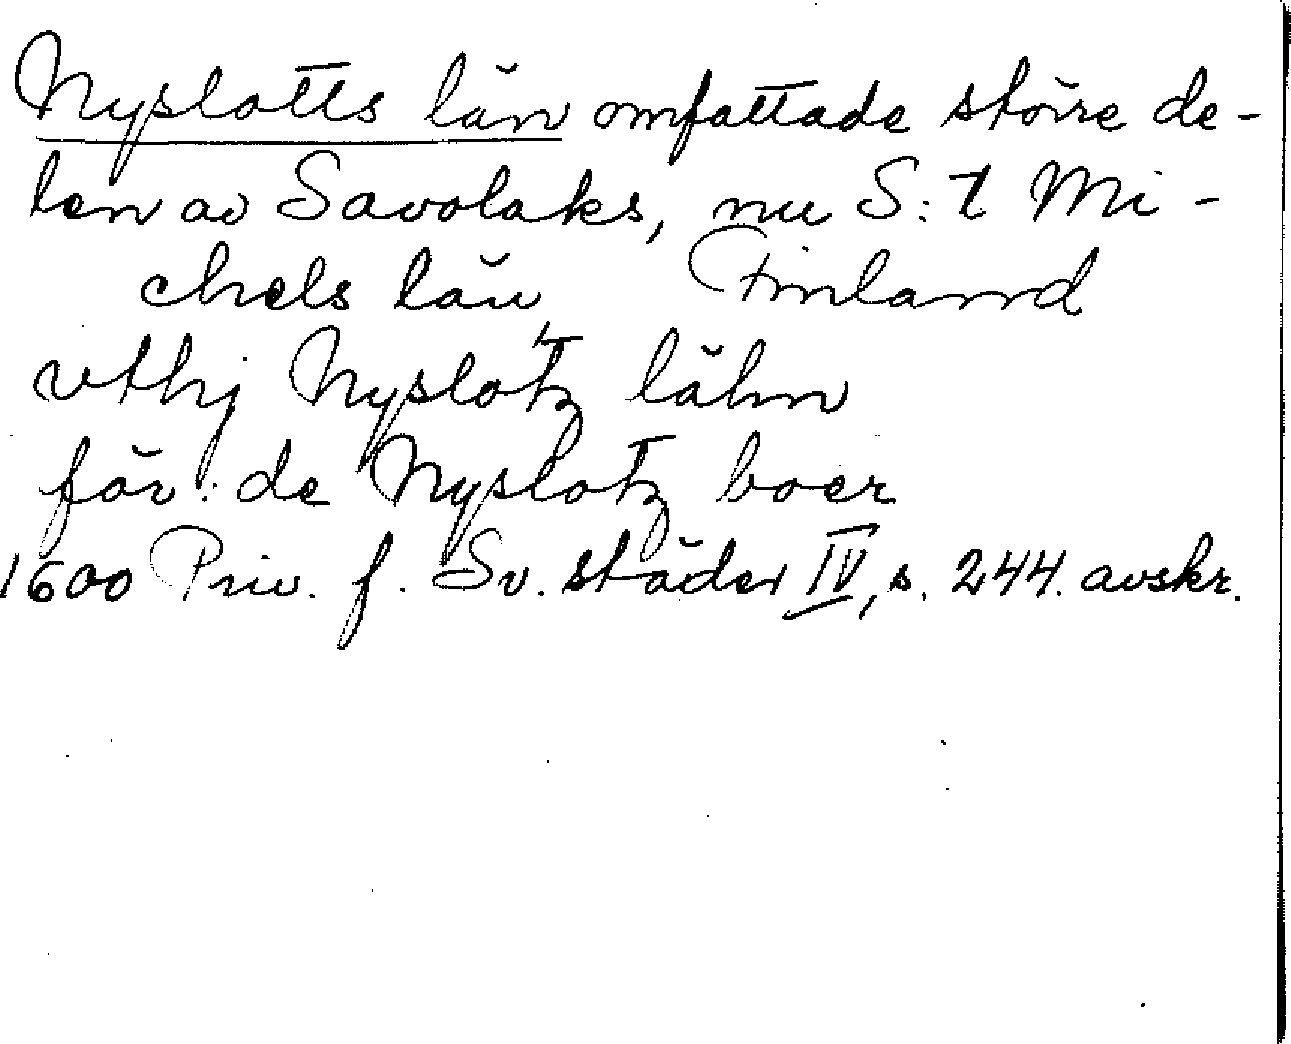 Nyslotts län omfattade större de-
len av Savolaks, nu S:t Mi-
chels län, Finland
vthj Nyslotz lähn
för: de Nyslotz boer
1600 Priv. f. Sv. städer IV, s. 244. avskr.